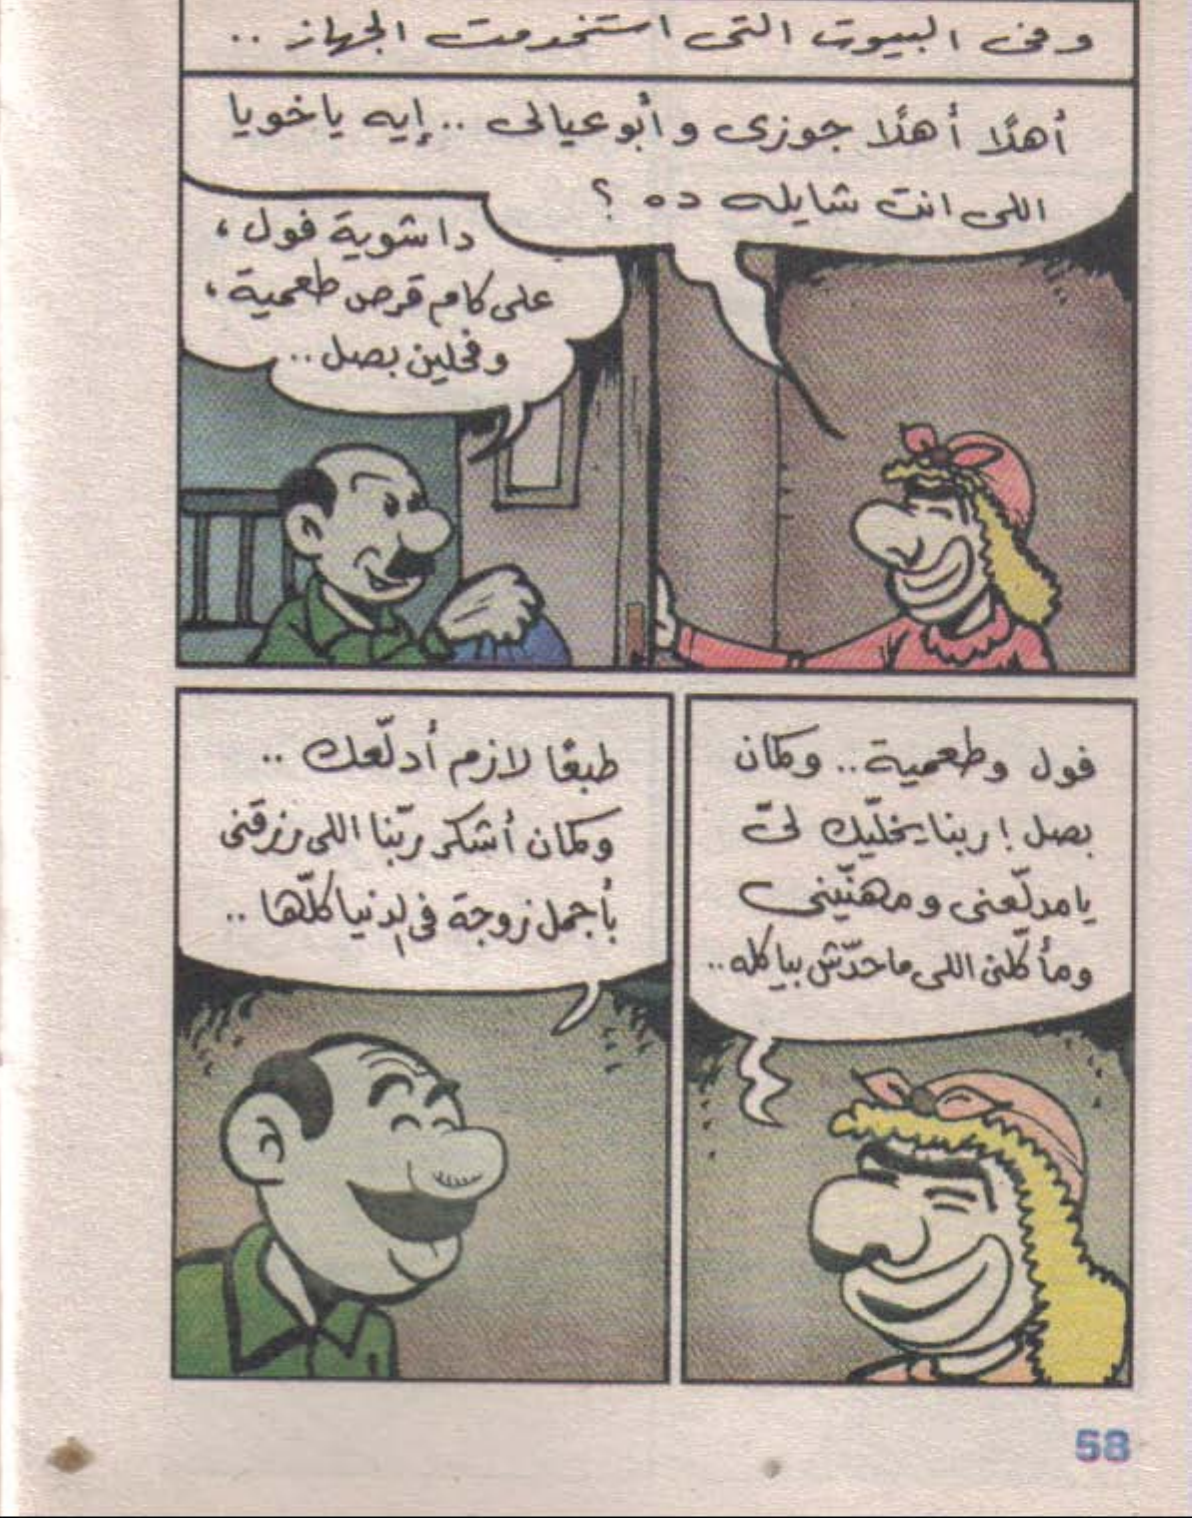 وفى البيوت التى استخدمت الجهاز ..
أهلًا أهلًا جوزى وأبو عيالى .. إيه ياخويا
اللى انت شايله ده ؟
دا شوية فول ،
على كام قرص طعمية ،
وفحلين بصل ..
فول وطعمية .. وكمان
بصل ! ربنا يخلّيك لىّ
يا مدلّعنى ومهنّينى
ومأكّلنى اللى ماحدّش بياكله ..
طبعًا لازم أدلّعك ..
وكمان أشكر ربّنا اللى رزقنى
بأجمل زوجة فى الدنيا كلّها ..
58